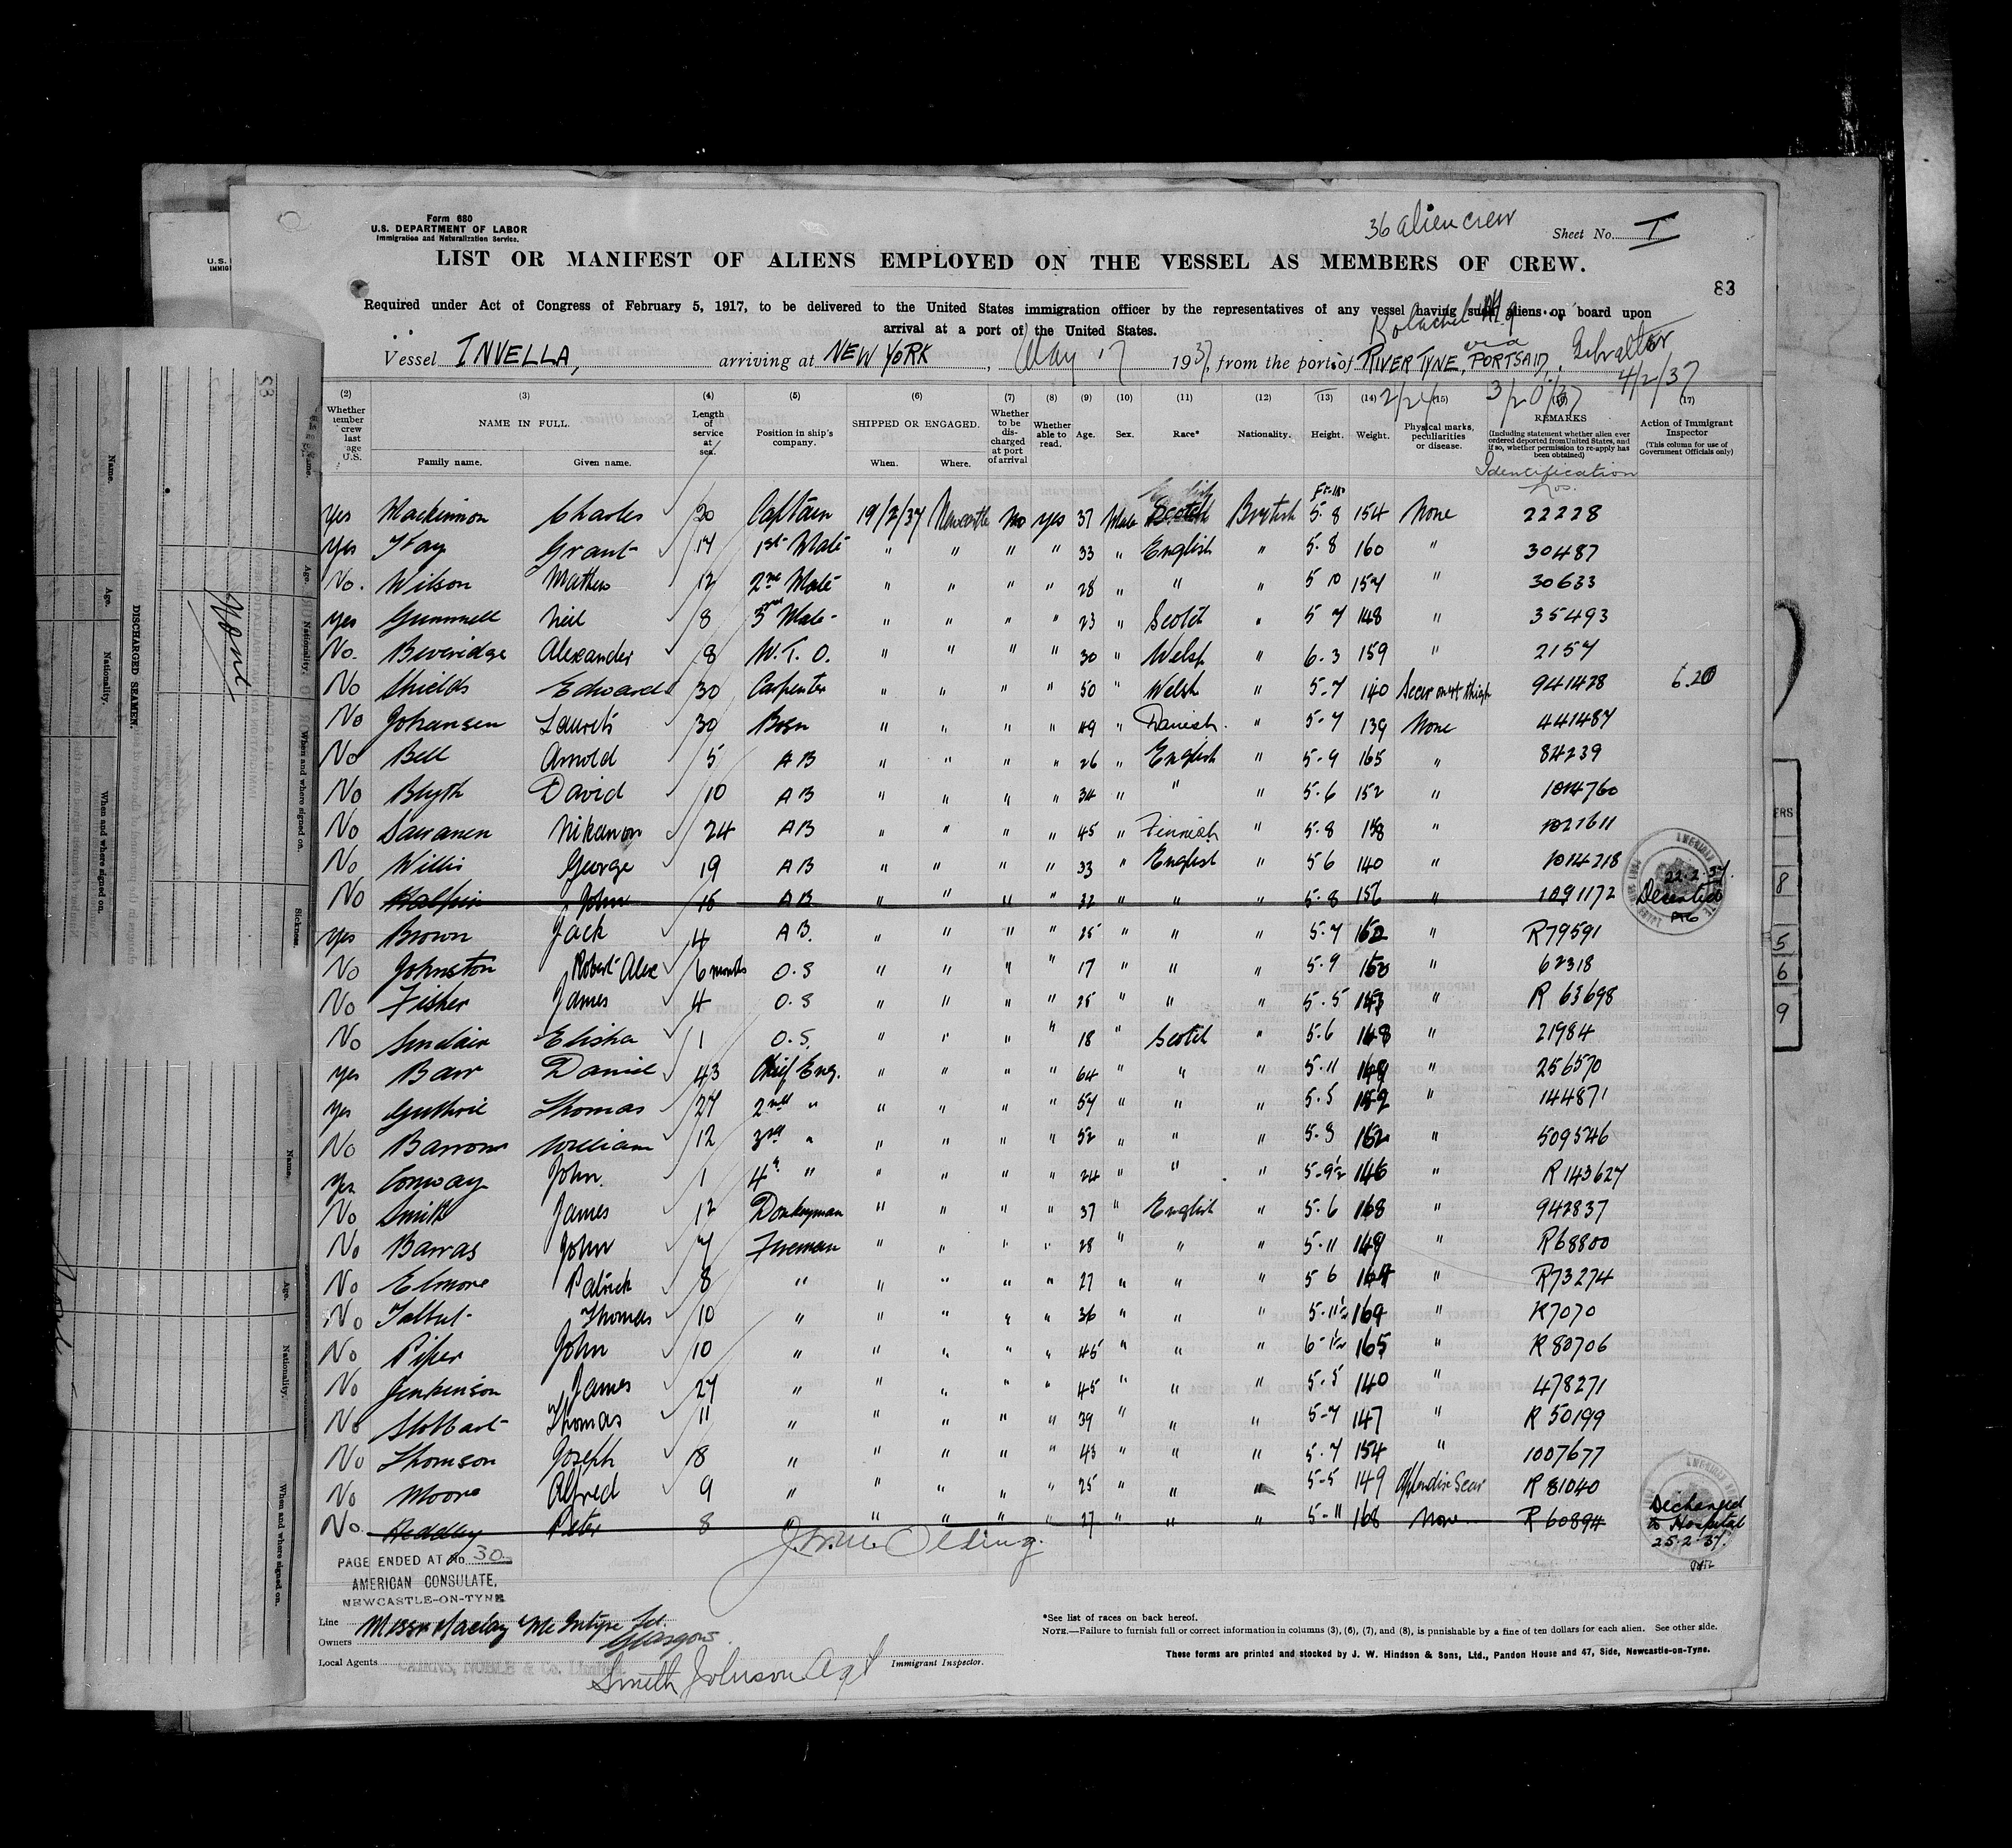 Form 680
U.S. DEPARTMENT OF LABOR
Immigration and Naturalization Service.
36 alien crew
Sheet No. I
LIST OR MANIFEST OF ALIENS EMPLOYED ON THE VESSEL AS MEMBERS OF CREW.
83
Required under Act of Congress of February 5, 1917, to be delivered to the United States immigration officer by the representatives of any vessel having such aliens on board upon
arrival at a port of the United States.
Vessel INVELLA, arriving at NEW YORK, May 17 1937, from the ports of RIVER TYNE, via PORTSAID, Gibraltar
4/2/37
(2) (3) (4) (5) (6) (7) (8) (9) (10) (11) (12) (13) (14) (15) (17)
NAME IN FULL. Length of service at sea. Position in ship's company. SHIPPED OR ENGAGED. Whether to be discharged at port of arrival Whether able to read. Age. Sex. Race* Nationality. Height. Weight. Physical marks, peculiarities or disease. REMARKS (Including statement whether alien ever ordered deported from United States, and if so, whether permission to re-apply has been obtained) Action of Immigrant Inspector (This column for use of Government Officials only)
Family name. Given name. When. Where.
Identification Nos.
Yes Mackinnon Charles 20 Captain 19/2/37 Newcastle No yes 37 Male Scotch British 5.8 154 None 22228
Yes Grant 14 1st Mate " " " " 33 " English " 5.8 160 " 30487
No. Wilson Mathew 12 2nd Mate " " " " 28 " " " 5 10 157 " 30633
yes Gummell Neil 8 3rd Mate " " " " 23 " Scotch " 5 7 148 " 35493
No. Beveridge Alexander 8 W.T.O. " " " " 30 " Welsh " 6.3 159 " 2157
No Shields Edward 30 Carpenter " " " " 50 " Welsh " 5-7 140 Scar on thigh 941428
No Johansen Laurets 30 Bosn " " " " 49 " Danish " 5-7 139 None 441487
No Bell Arnold 5 AB " " " " 26 " English " 5-9 165 " 84239
No Blyth David 10 AB " " " " 34 " " " 5.6 152 " 1014760
No Saranen Nikanon 24 AB " " " " 45 " Finnish " 5.8 158 " 1021611
No Willis George 19 AB " " " " 33 " English " 5 6 140 " 1014218
No Halpin John 15 AB " " " " 32 " " " 5-8 156 " 1091172 22.2.37. Deserted
yes Brown Jack 4 AB. " " " " 25 " " " 5.7 162 " R79591
No Johnston Robert Alex 6 months O.S " " " " 17 " " " 5.9 150 " 62318
No Fisher James 4 O.S " " " " 25 " " " 5.5 143 " R 63698
No Sinclair Elisha 1 O.S. " " " " 18 " Scotch " 5.6 148 " 21984
yes Barr Daniel 43 Chief Eng. " " " " 64 " " " 5.11 149 " 256570
Yes Guthrie Thomas 27 2nd " " " " " 57 " " " 5.5 159 " 144871
No Barrow William 12 3rd " " " " " 52 " " " 5.9 152 " 509546
Yes Conway John. 1 4th " " " " " 24 " " " 5-9½ 146 " R 143627
No Smith James 12 Donkeyman " " " " 37 " English " 5.6 168 " 942837
No Barras John 7 Fireman " " " " 28 " " " 5.11 149 " R68800
No Elmore Patrick 8 " " " " " 27 " " " 5 6 164 " R73274
No Talbut Thomas 10 " " " " " 36 " " " 5-11½ 169 " R7070
No Piper John 10 " " " " " 45 " " " 6-1½ 165 " R 80706
No Jenkinson James 27 " " " " " 45 " " " 5.5 140 " 478271
No Stobbart Thomas 11 " " " " " 39 " " " 5-7 147 " R 50199
No Thomson Joseph 18 " " " " " 43 " " " 5.7 154 " 1007677
No Moore Alfred 9 " " " " " 25 " " " 5-5 149 Appendix Scar R 81040
No. Reddley Peter 8 " " " " " 27 " " " 5-11 168 None R 60894 Discharged to Hospital 25.2.37.
PAGE ENDED AT No. 30
AMERICAN CONSULATE,
NEWCASTLE-ON-TYNE
Line
Owners Messrs Maclay & McIntyre Ltd. Glasgow
Local Agents CAIRNS, NOBLE & Co. Limited.
Smith Johnson Agt Immigrant Inspector.
*See list of races on back hereof.
NOTE.—Failure to furnish full or correct information in columns (3), (6), (7), and (8), is punishable by a fine of ten dollars for each alien. See other side.
These forms are printed and stocked by J. W. Hindson & Sons, Ltd., Pandon House and 47, Side, Newcastle-on-Tyne.
DISCHARGED SEAMEN.
Name.
Age.
Nationality.
When and where signed on.
Sickness.
None
ERS
8
5
6
9